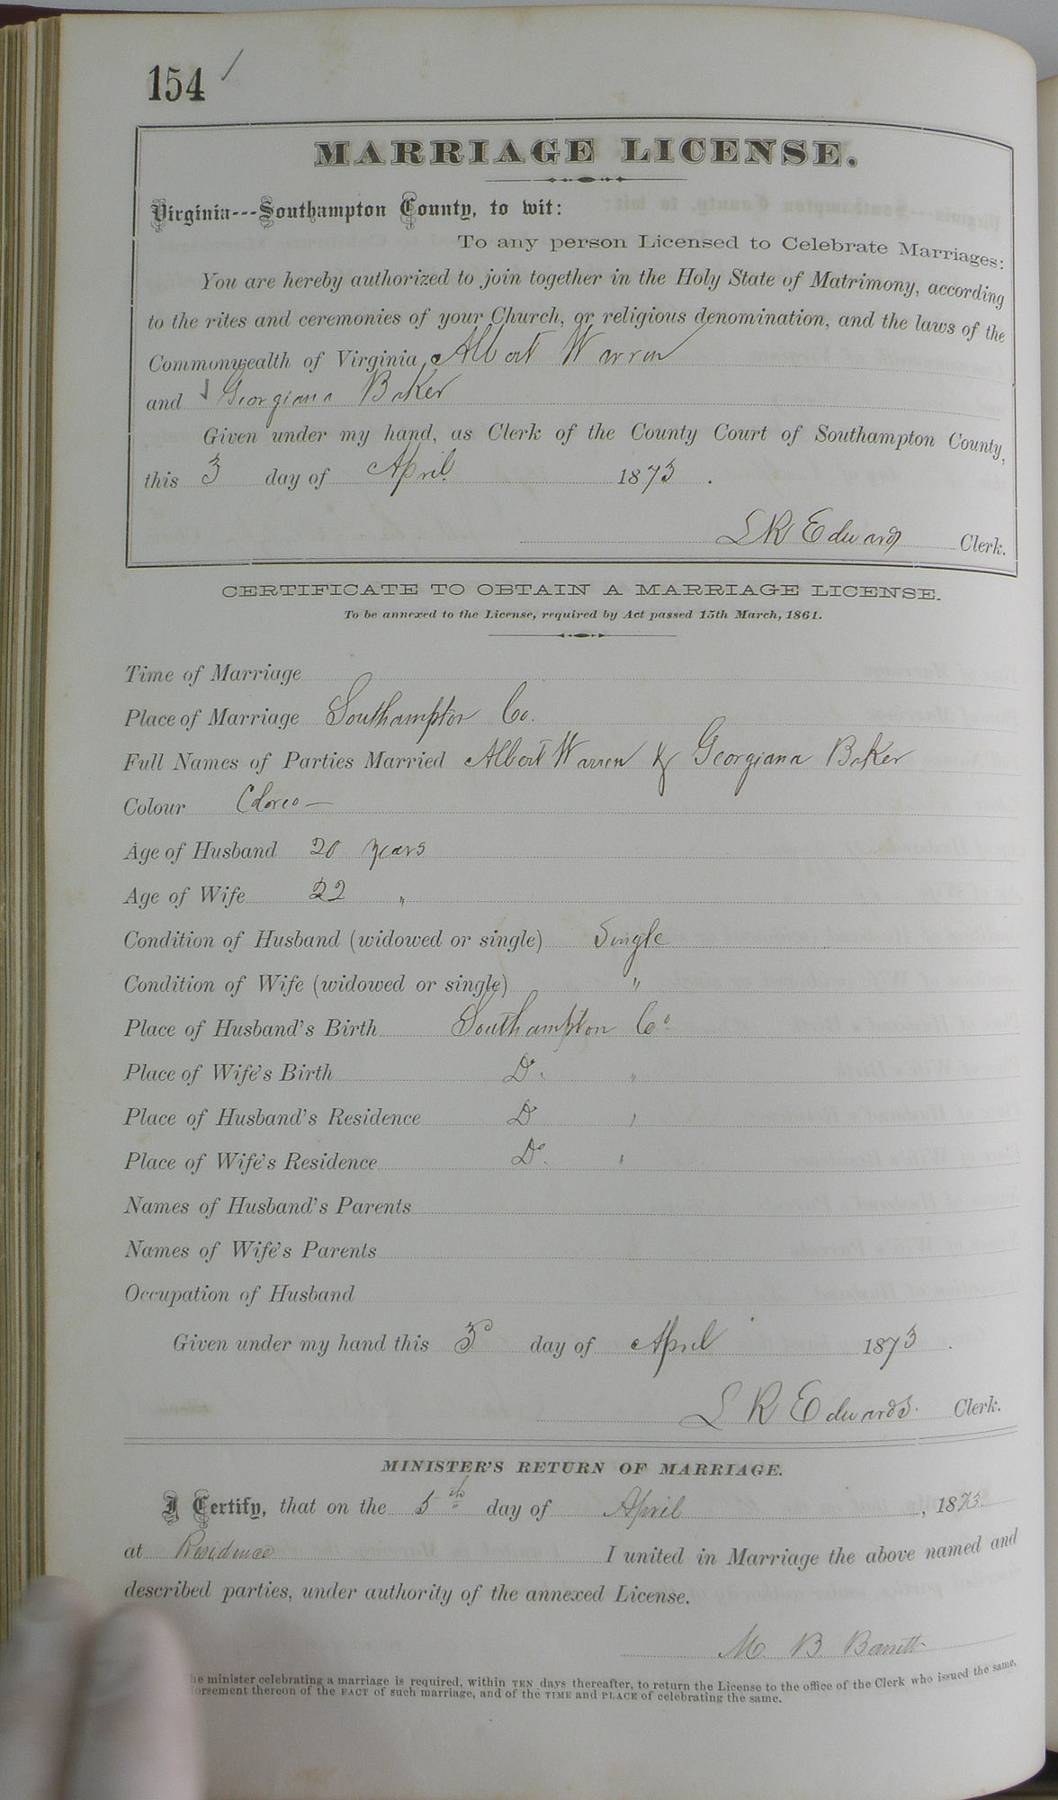 154
MARRIAGE LICENSE.
Virginia---Southampton County, to wit:
To any person Licensed to Celebrate Marriages:
You are hereby authorized to join together in the Holy State of Matrimony, according
to the rites and ceremonies of your Church, or religious denomination, and the laws of the
Commonwealth of Virginia, Albert Warren
and Georgiana Baker
Given under my hand, as Clerk of the County Court of Southampton County,
this 3 day of April 1873.
L R Edwards Clerk.
CERTIFICATE TO OBTAIN A MARRIAGE LICENSE.
To be annexed to the License, required by Act passed 15th March, 1861.
Time of Marriage
Place of Marriage Southampton Co.
Full Names of Parties Married Albert Warren & Georgiana Baker
Colour Colored
Age of Husband 20 years
Age of Wife 22 "
Condition of Husband (widowed or single) Single
Condition of Wife (widowed or single) "
Place of Husband's Birth Southampton Co
Place of Wife's Birth Do "
Place of Husband's Residence Do "
Place of Wife's Residence Do "
Names of Husband's Parents
Names of Wife's Parents
Occupation of Husband
Given under my hand this 3d day of April 1873.
L R Edwards. Clerk.
MINISTER'S RETURN OF MARRIAGE.
I Certify, that on the 5th day of April, 1873
at Residence I united in Marriage the above named and
described parties, under authority of the annexed License.
M. B. Barrett
he minister celebrating a marriage is required, within TEN days thereafter, to return the License to the office of the Clerk who issued the same,
orsement thereon of the FACT of such marriage, and of the TIME and PLACE of celebrating the same.